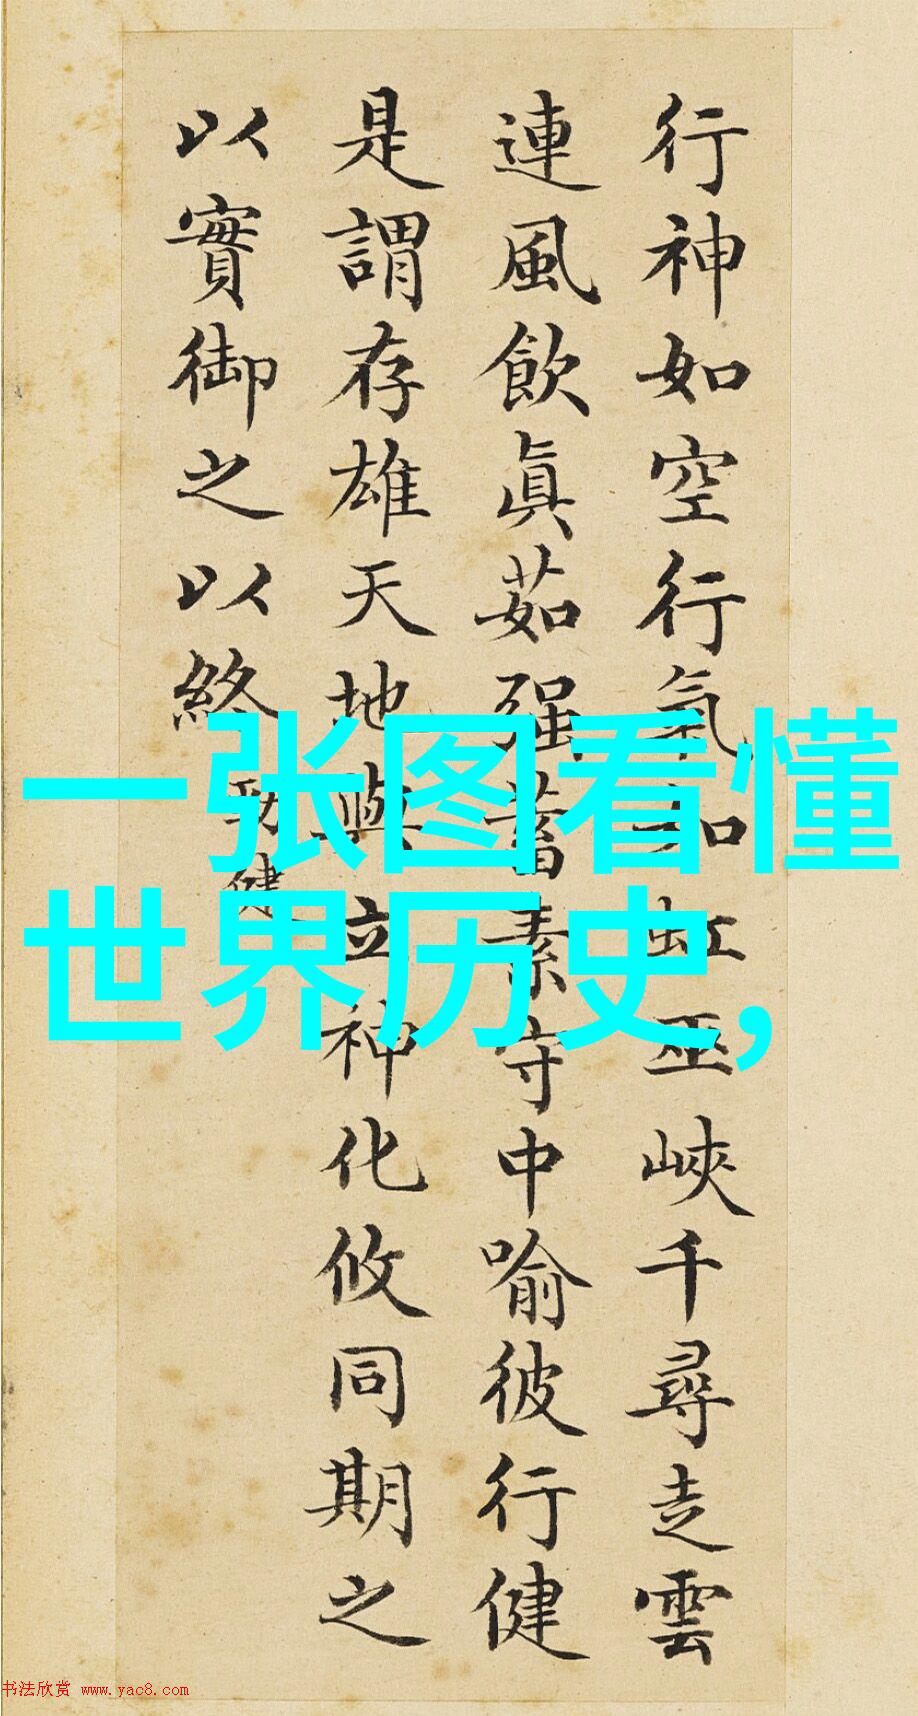 行神如空行氣如虹巫峽千尋走雲
連風飲眞茹强蓄素守中喻彼行健
是謂存雄天地與立神化攸同期之
以實御之以終
劲健
一张图看懂
世界历史,
书法欣赏 www.yac8.com